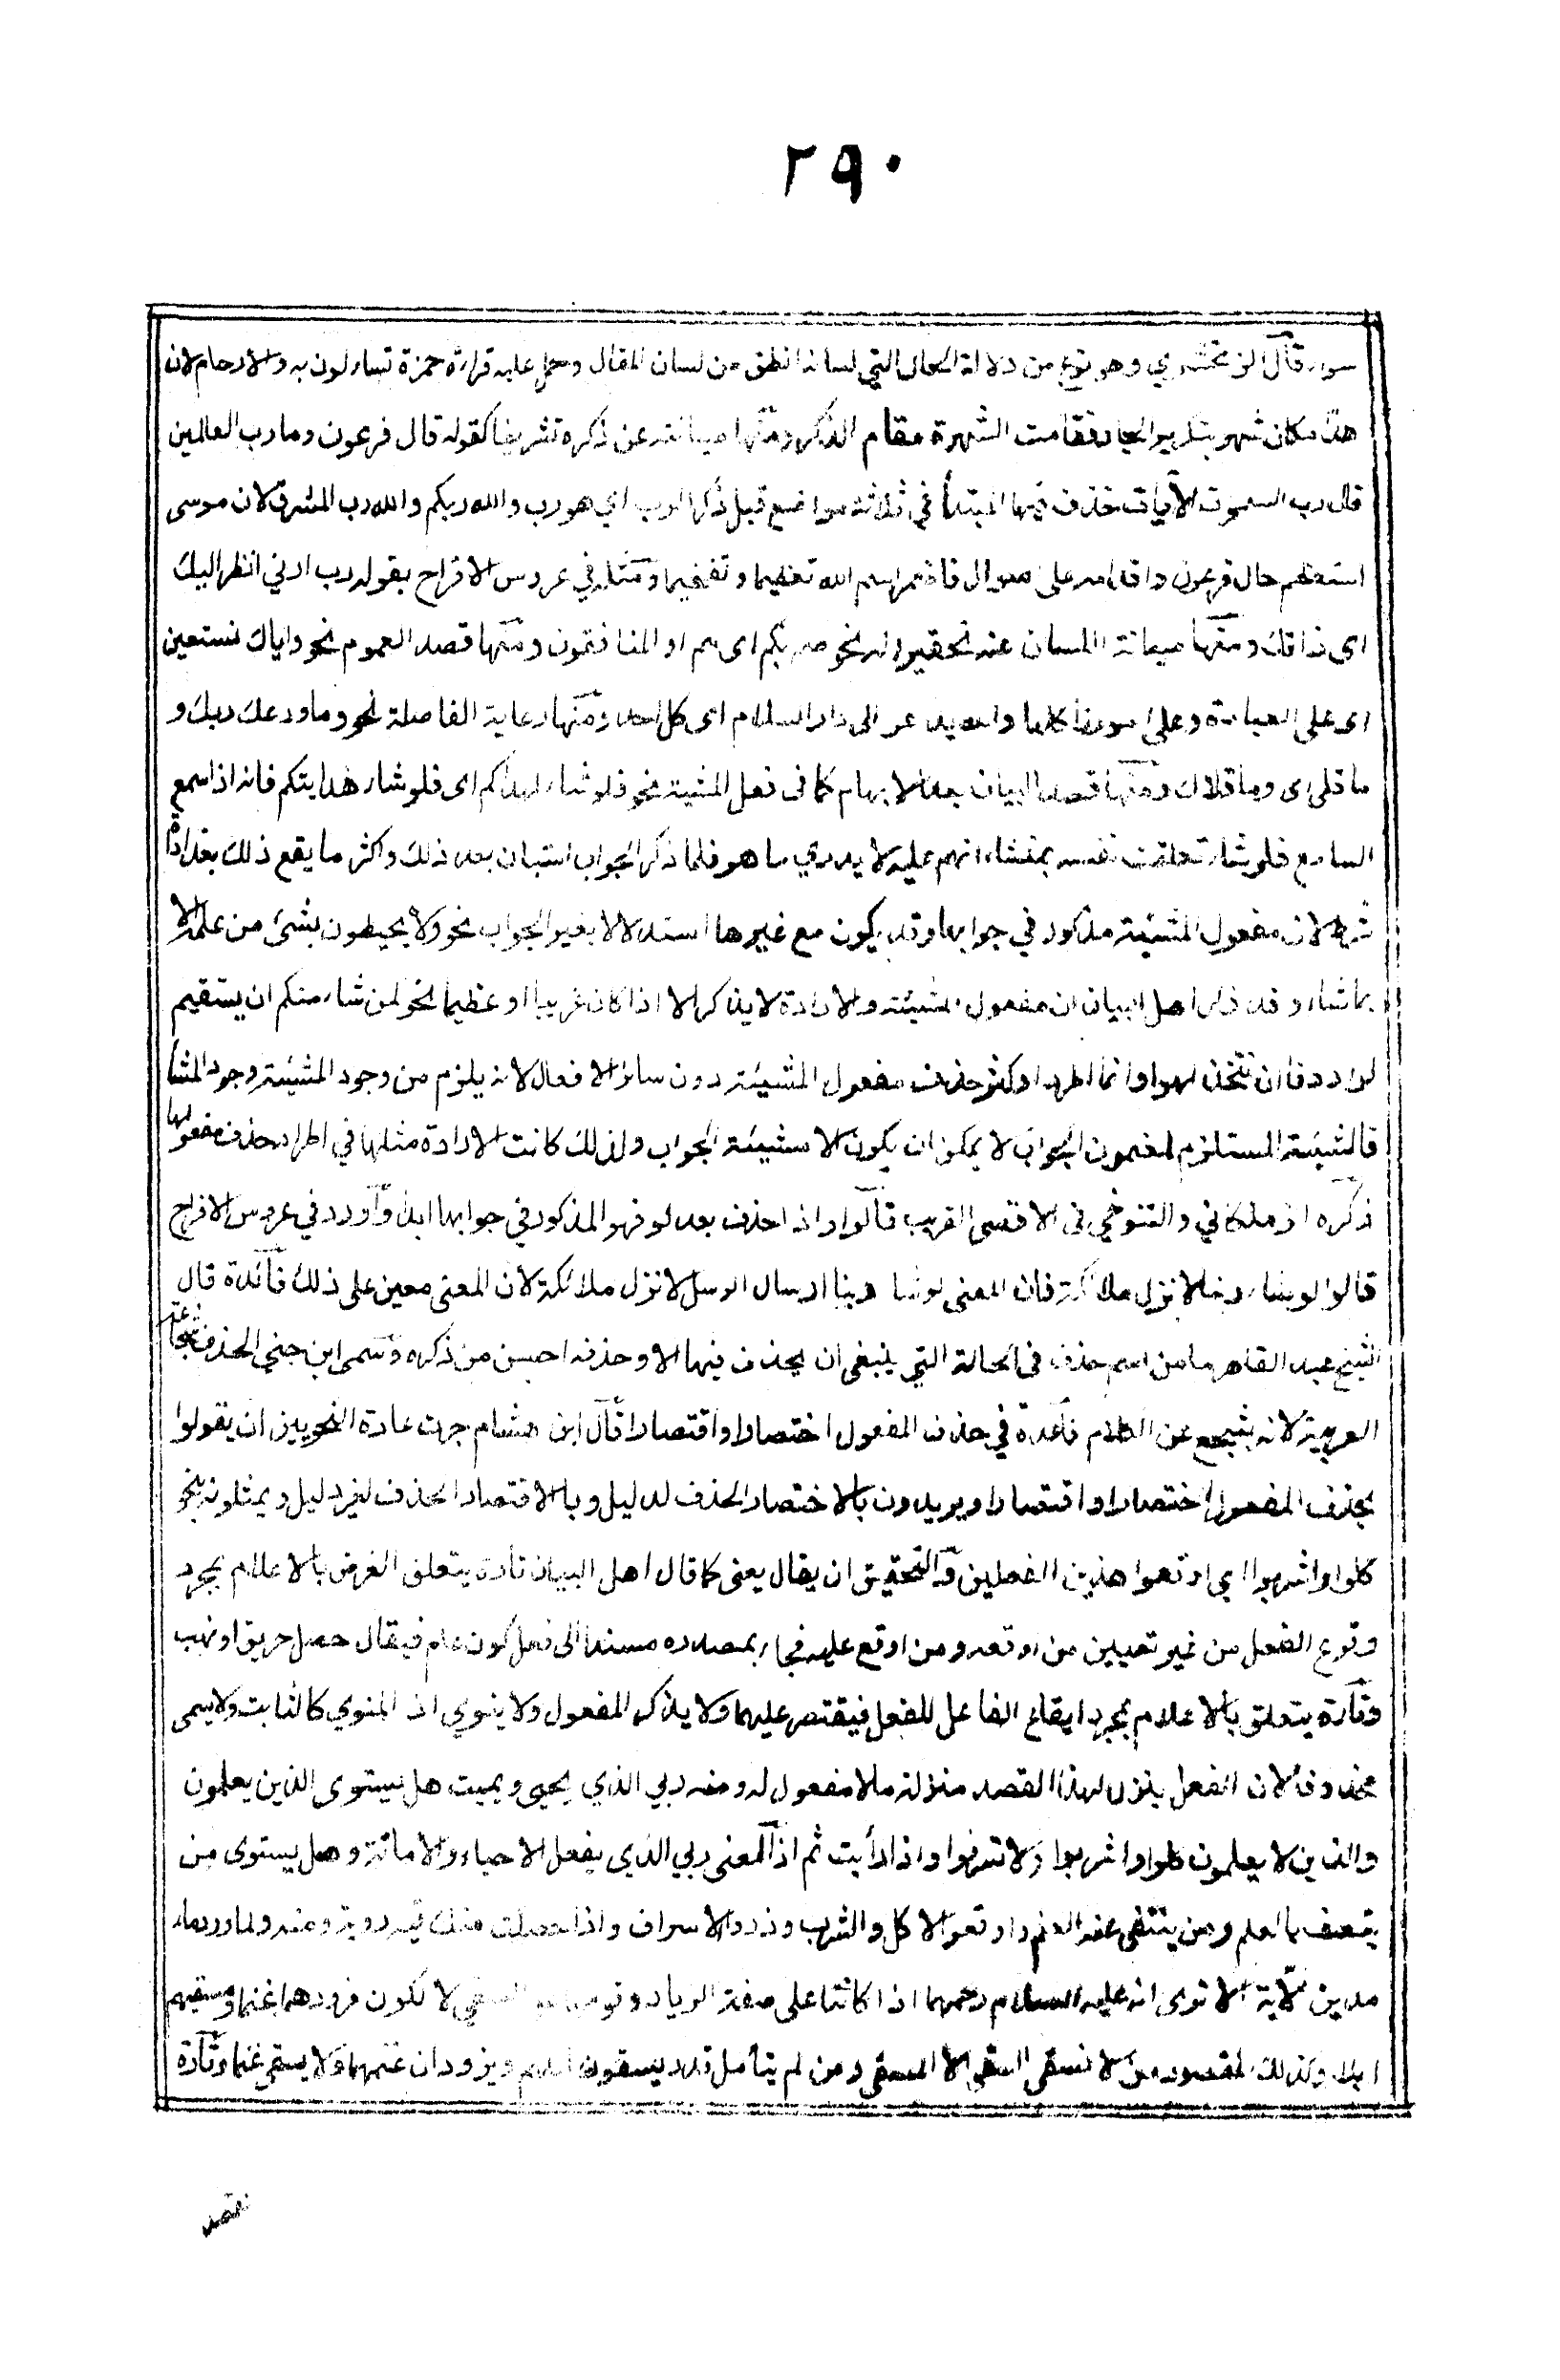 ٢٩٠
سواء قال الزمخشري وهو نوع من دلالة الحال التي لسانها انطق من لسان المقال وحمل عليه قراءة حمزة تساءلون به والارحام لان
هذا مكان شهر بتكرير الجار فقامت الشهرة مقام الذكر ومنها صيانته عن ذكره تشريفا كقوله قال فرعون وما رب العالمين
قال رب السموت الآيات حذف فيها المبتدأ في ثلاثة مواضع قبل ذكر الرب اي هو رب والله ربكم والله رب المشرق لان موسى
استعظم حال فرعون واقدامه على السوال فاضمر اسم الله تعظيما وتفخيما ومثله في عروس الافراح بقوله رب ارني انظر اليك
اى ذاتك ومنها صيانة اللسان عنه تحقيرا له نحو صم بكم اى هم او المنافقون ومنها قصد العموم نحو واياك نستعين
اى على العبادة وعلى امورنا كلها والله يدعو الى دار السلام اى كل احد ومنها رعاية الفاصلة نحو وما ودعك ربك و
ما قلى اى وما قلاك ومنها قصد البيان بعد الابهام كما فى فعل المشية نحو فلو شاء لهداكم اى فلو شاء هدايتكم فانه اذا سمع
السامع فلو شاء تعلقت نفسه بمشاء انبهم عليه لا يدري ما هو فلما ذكر الجواب استبان بعد ذلك واكثر ما يقع ذلك بعد اداة
شرط لان مفعول المشيئة مذكور في جوابها وقد يكون مع غيرها استدلالا بغير الجواب نحو ولا يحيطون بشئ من علمه الا
بما شاء وقد ذكر اهل البيان ان مفعول المشيئة والارادة لا يذكر الا اذا كان غريبا او عظيما نحو لمن شاء منكم ان يستقيم
لو اردنا ان نتخذ لهوا وانما اطرد او كثر حذف مفعول المشيئة دون سائر الافعال لانه يلزم من وجود المشيئة وجود المشاء
فالمشيئة المستلزم لمضمون الجواب لا يمكن ان يكون الا مشيئة الجواب ولذلك كانت الارادة مثلها في اطراد حذف مفعولها
ذكره الزملكاني والتنوخي فى الاقصى القريب قالوا واذا حذف بعد لو فهو المذكور في جوابها ابدا وآورد في عروس الافراح
قالوا لو شاء ربنا لانزل ملائكة فان المعنى لو شاء ربنا ارسال الرسل لانزل ملائكة لان المعنى معين على ذلك فائدة قال
الشيخ عبد القاهر ما من اسم حذف فى الحالة التي ينبغي ان يحذف فيها الا وحذفه احسن من ذكره وسمى ابن جني الحذف شجاعة
العربية لانه يشجع عن الكلام قاعدة في حذف المفعول اختصارا واقتصارا قال ابن هشام جرت عادة النحويين ان يقولوا
بحذف المفعول اختصارا واقتصارا ويريدون بالاختصار الحذف لدليل وبالاقتصار الحذف لغير دليل ويمثلونه بنحو
كلوا واشربوا اي اوقعوا هذين الفعلين والتحقيق ان يقال يعنى كما قال اهل البيان تارة يتعلق الغرض بالاعلام بمجرد
وقوع الفعل من غير تعيين من اوقعه ومن اوقع عليه فيجاء بمصدره مسندا الى فعل كون عام فيقال حصل حريق او نهب
وتارة يتعلق بالاعلام بمجرد ايقاع الفاعل للفعل فيقتصر عليهما ولا يذكر المفعول ولا ينوي اذ المنوي كالثابت ولا يسمى
محذوفا لان الفعل ينزل لهذا القصد منزلة ما لا مفعول له ومنه ربي الذي يحيى ويميت هل يستوى الذين يعلمون
والذين لا يعلمون كلوا واشربوا ولا تسرفوا واذا رأيت ثم اذ المعنى ربي الذي يفعل الاحياء والاماتة وهل يستوى من
يتصف بالعلم ومن ينتفى عنه العلم واوقعوا الاكل والشرب وذروا الاسراف واذا حصلت منك رؤية ومنه ولما ورد ماء
مدين الآية الا ترى انه عليه السلام رحمهما اذا كانتا على صفة الذياد وقومهما على السقي لا لكون مزودهما غنما ومسقيهم
ابلا وكذلك المقصود من لا نسقى السقي لا المسقى ومن لم يتأمل قدر يسقون ابلهم ويزودان غنمهما ولا يسقى غنما وتارة
يقصد